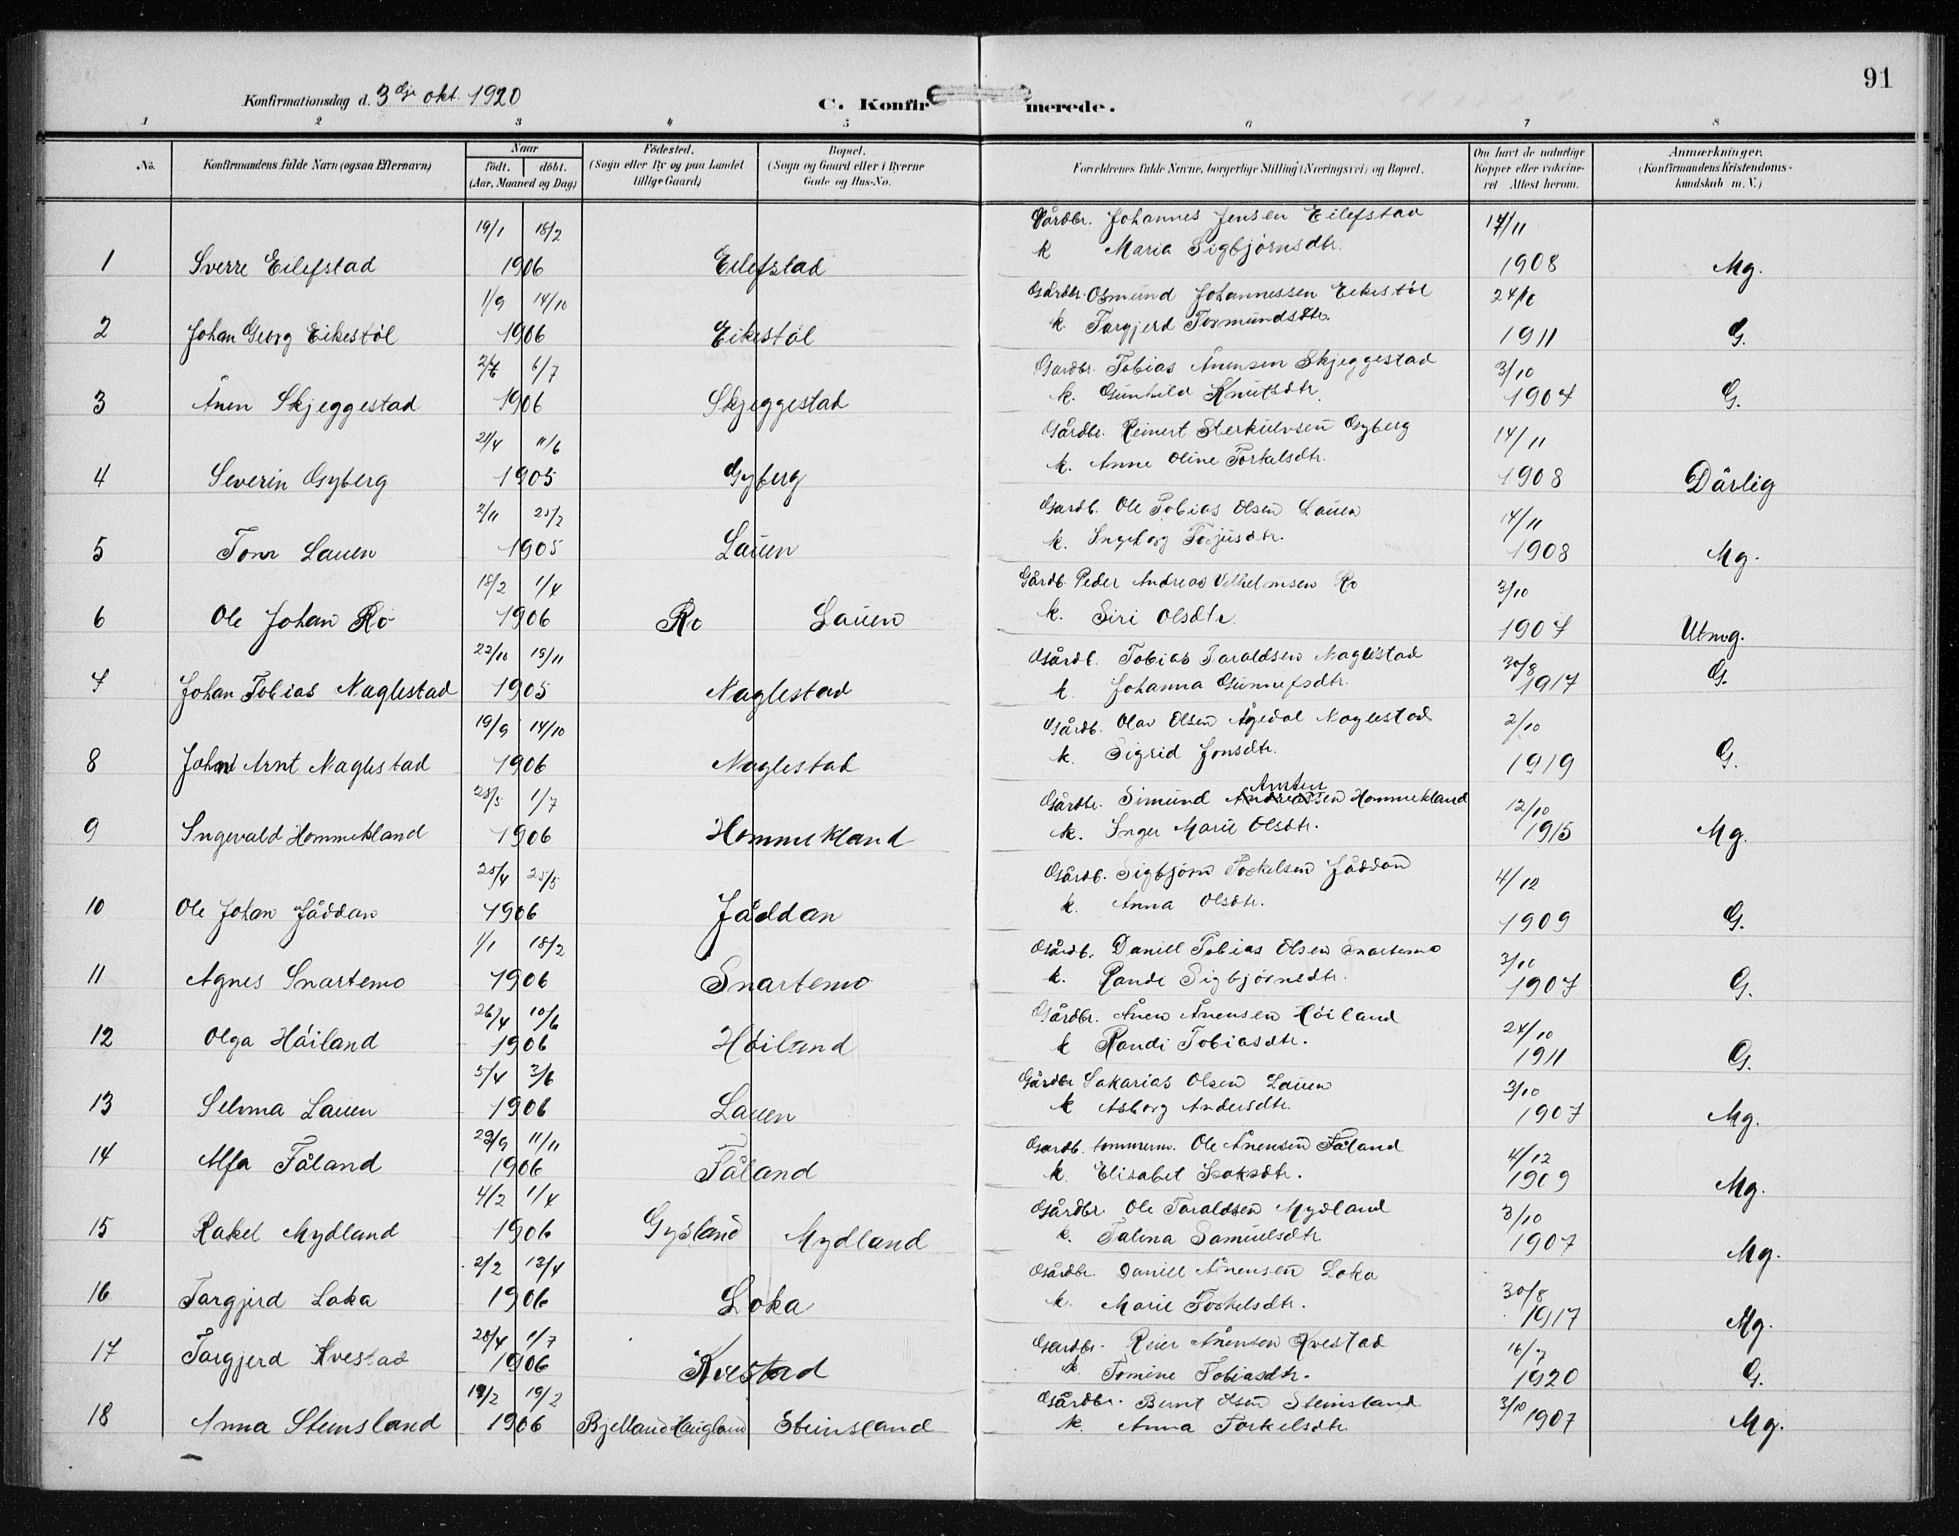 91
Konfirmationsdag d. 3dje okt. 1920
C. Konfirmerede.
1 2 3 4 5 6 7 8
No. Konfirmandens fulde Navn (ogsaa Efternavn) Naar født. døbt. (Aar, Maaned og Dag) Fødested. (Sogn eller By og paa Landet tillige Gaard) Bopæl. (Sogn og Gaard eller i Byerne Gade og Hus-No. Forældrenes fulde Navne, borgerlige Stilling (Næringsvei) og Bopæl. Om havt de naturlige Kopper eller vakcineret Attest herom. Anmærkninger. (Konfirmandens Kristendomskundskab m. V.)
19/1 18/2 Gårdbr. Johannes Jensen Eilefstad 17/11
1 Sverre Eilefstad 1906 Eilefstad k Maria Sigbjørnsdtr. 1908 Mg.
1/9 14/10 Gårdbr. Osmund Johannessen Eikestøl 24/10
2 Johan Georg Eikestøl 1906 Eikestøl k. Torgjerd Tormundsdtr. 1911 G.
2/6 6/7 Gardbr. Tobias Ånensen Skjeggestad 3/10
3 Ånen Skjeggestad 1906 Skjeggestad k. Gunhild Knutsdtr. 1907 G.
21/4 11/6 Gårdbr. Reinert Sterkulvsen Gyberg 14/11
4 Severin Gyberg 1905 Gyberg k. Anne Oline Torkelsdtr. 1908 Dårlig
2/11 25/2 Gardb. Ole Tobias Olsen Lauen 14/11
5 Tom Lauen 1905 Lauen k. Ingeborg Torjusdtr. 1908 Mg.
18/2 1/4 Gårdb Peder Andreas Vilhelmsen Ro 3/10
6 Ole Johan Ro 1906 Ro Lauen k. Siri Olsdtr. 1907 Utmg.
22/10 19/11 Gårdb. Tobias Taraldsen Naglestad 30/8
7 Johan Tobias Naglestad 1905 Naglestad k. Johanna Gunnufsdtr. 1917 G.
19/9 14/10 Gårdb. Olav Olsen Ågedal Naglestad 2/10
8 Johan Arnt Naglestad 1906 Naglestad k Sigrid Jonsdtr. 1919 G.
28/5 1/7 Gårdbr. Simund Andreassen Hommekland 12/10
9 Ingevald Hommekland 1906 Hommekland k. Inger Marie Olsdtr. 1915 Mg.
25/4 25/5 Gårdb. Sigbjørn Torkelsen Jåddan 4/12
10 Ole Johan Jåddan 1906 Jåddan k. Anna Olsdtr. 1909 G.
1/1 18/2 Gårdb. Daniel Tobias Olsen Snartemo 3/10
11 Agnes Snartemo 1906 Snartemo k. Randi Sigbjørnsdtr. 1907 G.
26/4 10/6 Gårdbr. Ånen Ånensen Høiland 24/10
12 Olga Høiland 1906 Høiland k Randi Tobiasdtr. 1911 G.
5/4 3/6 Gårdbr Sakarias Olsen Lauen 3/10
13 Selma Lauen 1906 Lauen k Asborg Andersdtr. 1907 Mg.
23/9 11/11 Gardb. tømmerm. Ole Ånensen Fåland 4/12
14 Alfa Fåland 1906 Fåland k. Elisabet Isaksdtr. 1909 Mg.
4/2 1/4 Gårdbr Ole Taraldsen Mydland 3/10
15 Rakel Mydland 1906 Gysland Mydland k. Talina Samuelsdtr. 1907 Mg.
2/2 13/4 Gårdbr. Daniel Ånensen Loka 30/8
16 Torgjerd Loka 1906 Loka k. Marie Torkelsdtr. 1917 Mg.
28/4 1/7 Gardbr. Reier Ånensen Kvestad 16/7
17 Torgjerd Kvestad 1906 Kvestad k Tomine Tobiasdtr. 1920 G.
19/2 Gårdbr. Bernt Olsen Steinsland 3/10
18 Anna Steinsland 1906 Bjelland Haugland Steinsland k. Anna Torkelsdtr 1907 Mg.